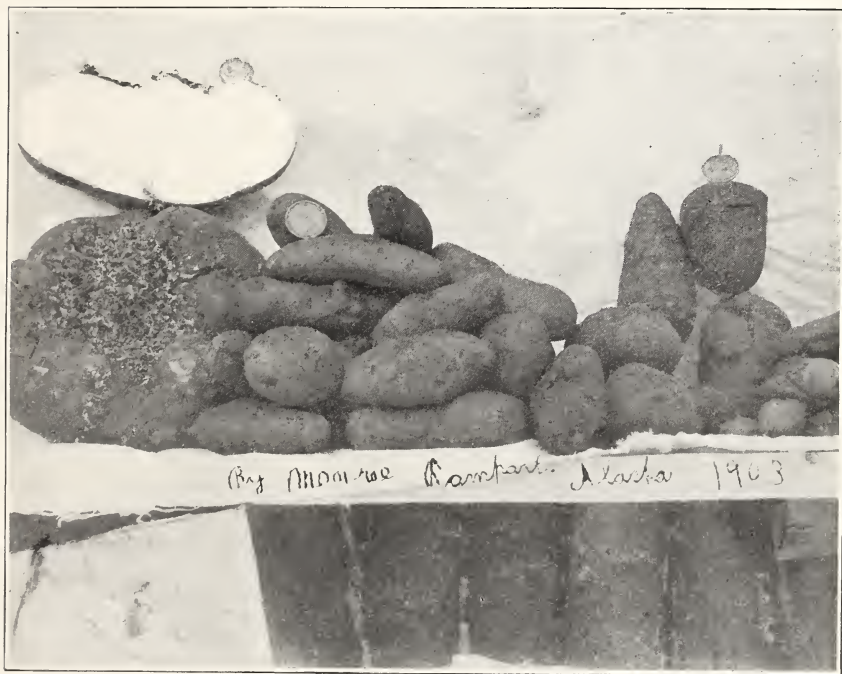 By Monroe Rampart. Alaska 1903